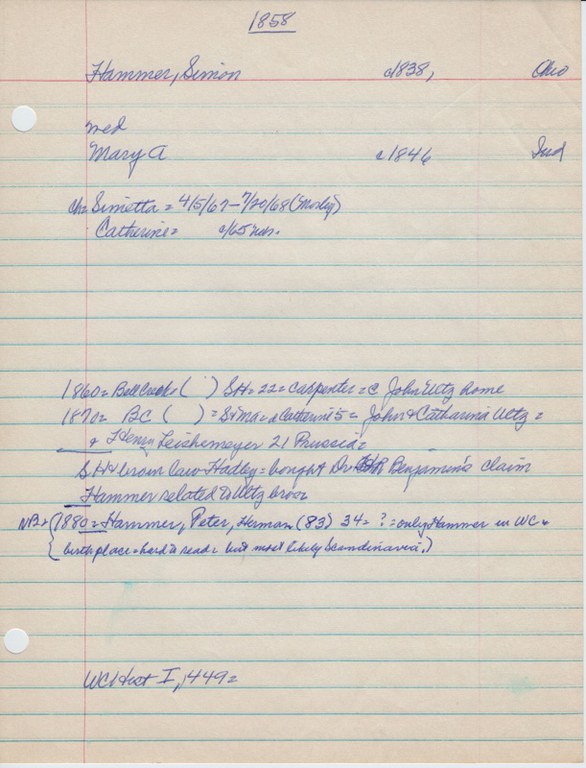 1858
Hammer, Simon c1838, Ohio
med
Mary A c1846 Ind
ch= Simetta = 4/5/67-7/20/68 (Mosby)
Catherine= c/65 neb.
1860= Bell Creek ( ) SH= 22= carpenter= c John Ultz home
1870= BC ( ) = S+ma= d Catherine 5= John & Catharine Utz =
& Henry Leishemeyer 21 Prussia=
SH & bro in law Hadley= bought Dr HR Benjamin's claim
Hammer related to Utz bros
NB= (1880= Hammer, Peter, Herman (83) 34= ?= only Hammer in WC &
birthplace= hard to read= but most likely Scandinavia.)
WC Hist I, 449=